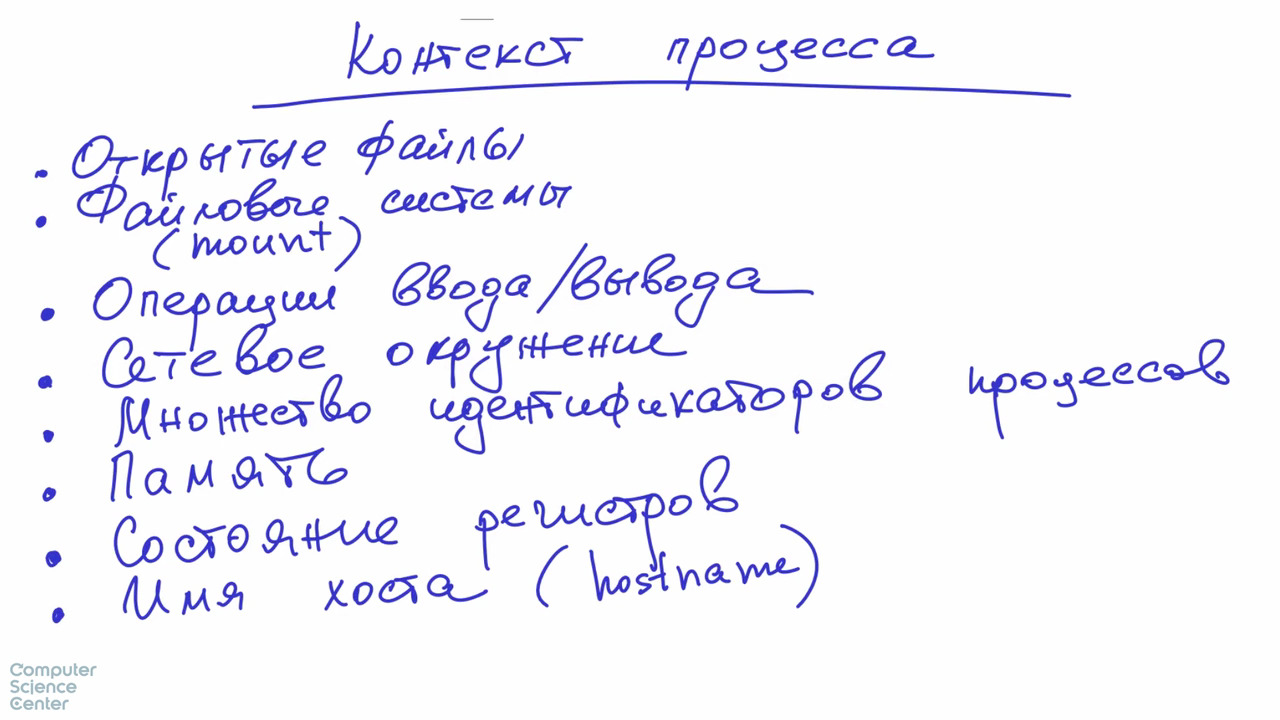 Контекст процесса
· Открытые файлы
· Файловые системы
(mount)
· Операции ввода/вывода
· Сетевое окружение
· Множество идентификаторов процессов
· Память
· Состояние регистров
· Имя хоста (hostname)
Computer
Science
Center